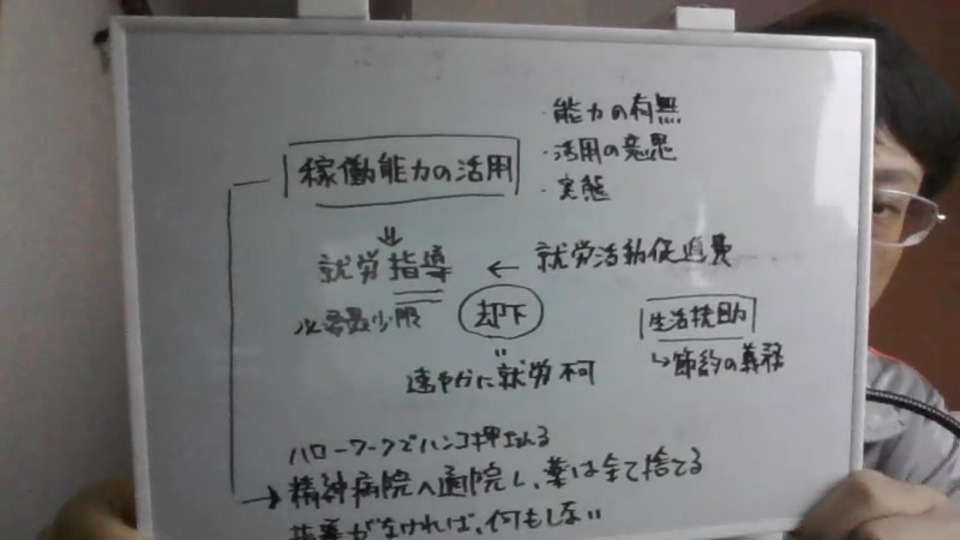 ・能力の有無
稼働能力の活用
・活用の意思
・実態
⇓
就労指導 ← 就労活動促進費
必要最少限
却下
生活扶助
"
↳節約の義務
速やかに就労不可
ハローワークでハンコ押される
→精神病院へ通院し、薬は全て捨てる
指導がなければ、何もしない